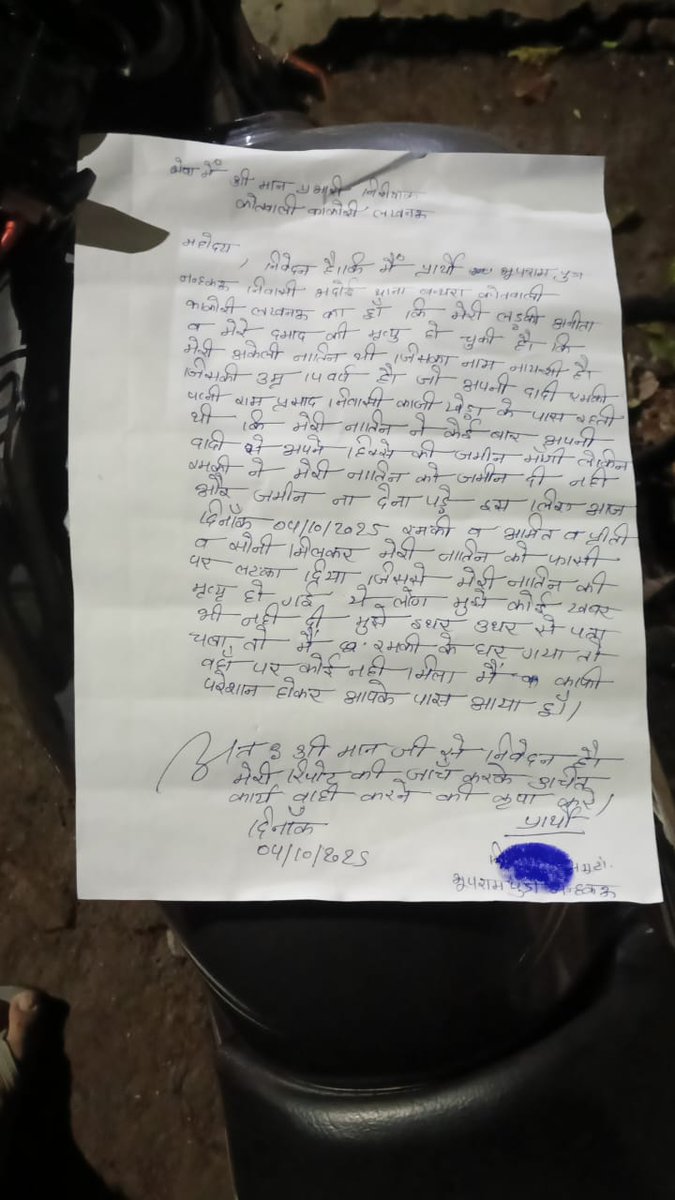 सेवा में
श्री मान प्रभारी निरीक्षक
कोतवाली काकोरी लखनऊ
महोदय
, निवेदन है।कि मैं प्रार्थी भुपराम पुत्र
नन्हकऊ निवासी भदोई थाना बन्थरा कोतवाली
काकोरी लखनऊ का हूँ कि मेरी लड़की अनीता
व मेरे दमाद की मृत्यु हो चुकी है। कि
मेरी अकेली नातिन थी जिसका नाम है।
जिसकी उम्र 14 वर्ष है। जो अपनी दादी रमकी
पत्नी राम प्रसाद निवासी काजी खेड़ा के पास रहती
थी कि मेरी नातिन ने कई बार अपनी
दादी से अपने हिस्से की जमीन माँगी लेकिन
रमकी ने मेरी नातिन को जमीन दी नही
और जमीन ना देना पड़े इस लिए आज
दिनाँक 04/10/2025 रमकी व अमित व प्रीती
व सोनी मिलकर मेरी नातिन को फासी
पर लटका दिया जिससे मेरी नातिन की
मृत्यू हो गई ये लोग मुझे कोई खबर
भी नही दी मुझे इधर उधर से पता
चला तो मैं रमकी के घर गया तो
वहाँ पर कोई नही मिला मैं काफी
परेशान होकर आपके पास आया हूँ।
अतः श्री मान जी से निवेदन है।
मेरी रिपोट की जाच करके उचित
कार्य वाही करने की कृपा करें।
दिनाँक
प्रार्थी
04/10/2025
भुपराम पुत्र नन्हकऊ